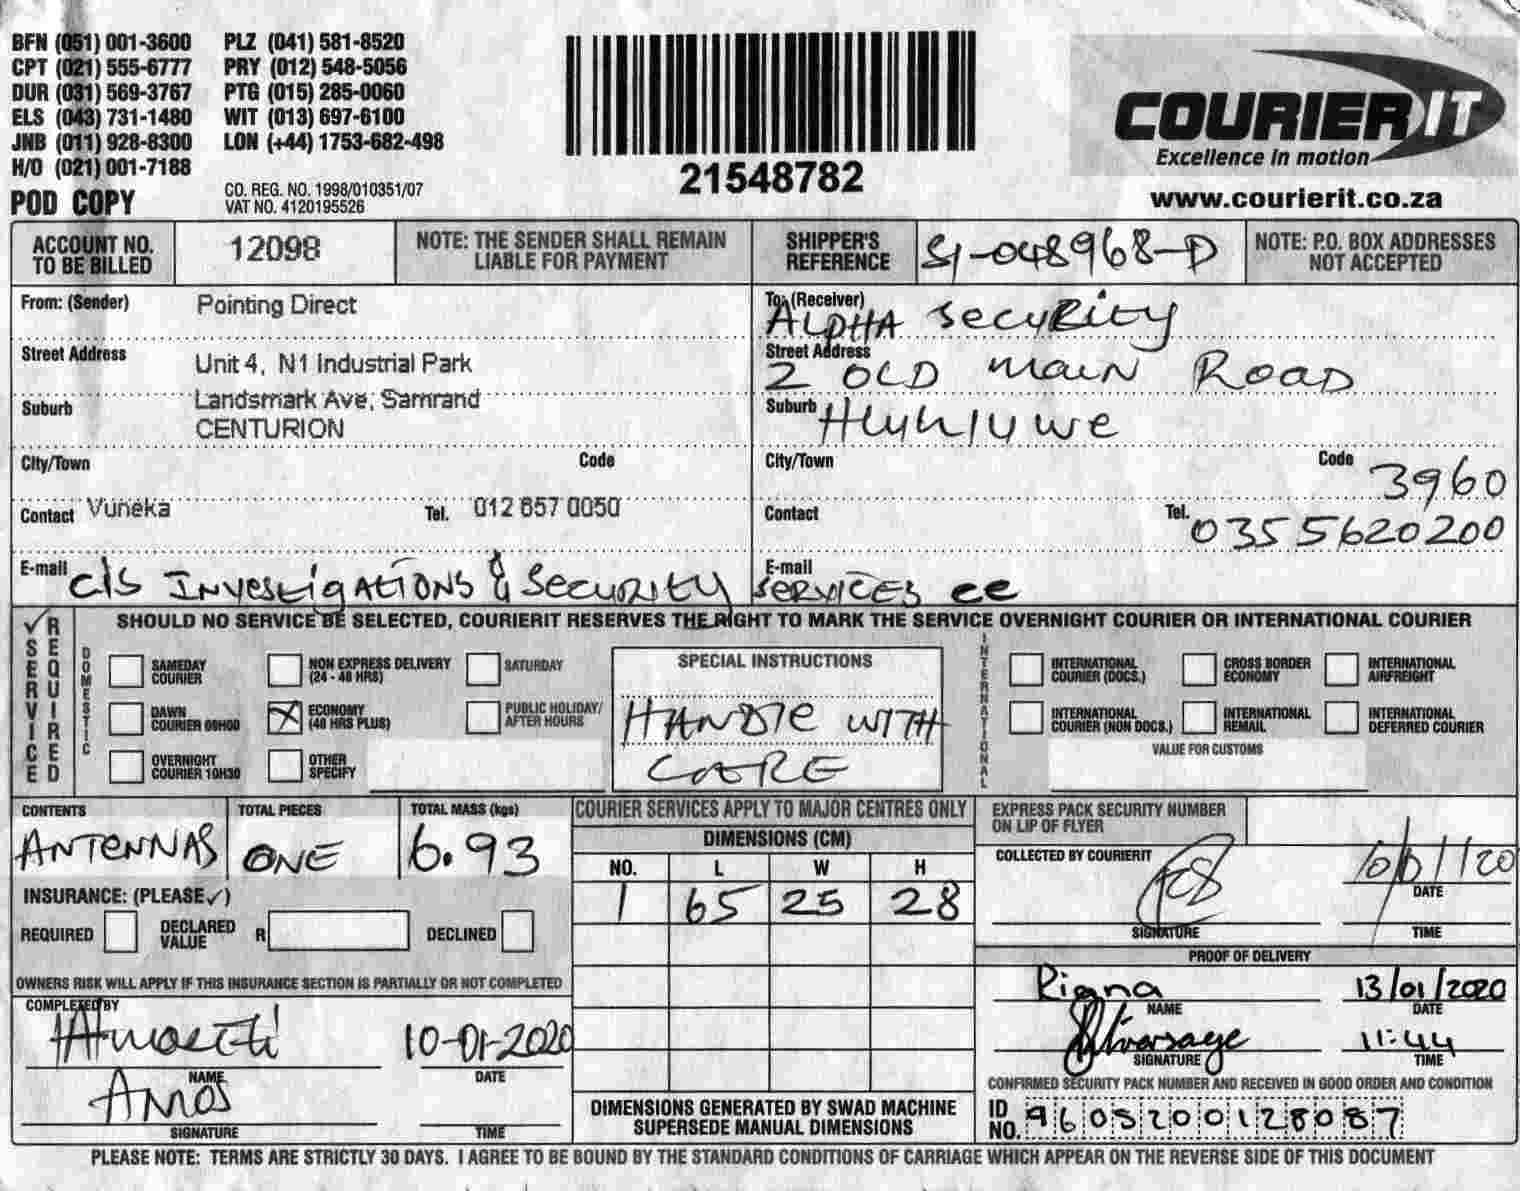 BFN (051) 001-3600 PLZ (041) 581-8520
CPT (021) 555-6777 PRY (012) 548-5056
DUR (031) 569-3767 PTG (015) 285-0060
ELS (043) 731-1480 WIT (013) 697-6100
JNB (011) 928-8300 LON (+44) 1753-682-498
H/O (021) 001-7188
POD COPY
CO. REG. NO. 1998/010351/07
VAT NO. 4120195526
21548782
COURIER IT
Excellence in motion
www.courierit.co.za
ACCOUNT NO. TO BE BILLED 12098
NOTE: THE SENDER SHALL REMAIN LIABLE FOR PAYMENT
SHIPPER'S REFERENCE SI-048968-D
NOTE: P.O. BOX ADDRESSES NOT ACCEPTED
From: (Sender) Pointing Direct
Street Address Unit 4, N1 Industrial Park
Landsmark Ave, Samrand
Suburb CENTURION
City/Town Code
Contact Vuneka Tel. 012 657 0050
To: (Receiver) ALPHA Security
Street Address 2 OLD main ROAD
Suburb Hluhluwe
City/Town Code 3960
Contact Tel. 0355620200
E-mail E-mail
cls Investigations & Security Services cc
✓ SERVICE REQUIRED
SHOULD NO SERVICE BE SELECTED, COURIERIT RESERVES THE RIGHT TO MARK THE SERVICE OVERNIGHT COURIER OR INTERNATIONAL COURIER
DOMESTIC
SAMEDAY COURIER
NON EXPRESS DELIVERY (24 - 48 HRS)
SATURDAY
DAWN COURIER 09H00
X ECONOMY (48 HRS PLUS)
PUBLIC HOLIDAY/ AFTER HOURS
OVERNIGHT COURIER 10H30
OTHER SPECIFY
SPECIAL INSTRUCTIONS
HANDLE WITH
CARE
INTERNATIONAL
INTERNATIONAL COURIER (DOCS.)
CROSS BORDER ECONOMY
INTERNATIONAL AIRFREIGHT
INTERNATIONAL COURIER (NON DOCS.)
INTERNATIONAL REMAIL
INTERNATIONAL DEFERRED COURIER
VALUE FOR CUSTOMS
CONTENTS TOTAL PIECES TOTAL MASS (kgs)
ANTENNAS ONE 6.93
INSURANCE: (PLEASE ✓)
REQUIRED DECLARED VALUE R DECLINED
OWNERS RISK WILL APPLY IF THIS INSURANCE SECTION IS PARTIALLY OR NOT COMPLETED
COMPLETED BY
10-01-2020
NAME DATE
Amos
SIGNATURE TIME
COURIER SERVICES APPLY TO MAJOR CENTRES ONLY
DIMENSIONS (CM)
NO. L W H
1 65 25 28
DIMENSIONS GENERATED BY SWAD MACHINE
SUPERSEDE MANUAL DIMENSIONS
EXPRESS PACK SECURITY NUMBER
ON LIP OF FLYER
COLLECTED BY COURIERIT
10/01/20
DATE
SIGNATURE TIME
PROOF OF DELIVERY
Riana 13/01/2020
NAME DATE
11:44
SIGNATURE TIME
CONFIRMED SECURITY PACK NUMBER AND RECEIVED IN GOOD ORDER AND CONDITION
ID NO. 9605200128087
PLEASE NOTE: TERMS ARE STRICTLY 30 DAYS. I AGREE TO BE BOUND BY THE STANDARD CONDITIONS OF CARRIAGE WHICH APPEAR ON THE REVERSE SIDE OF THIS DOCUMENT